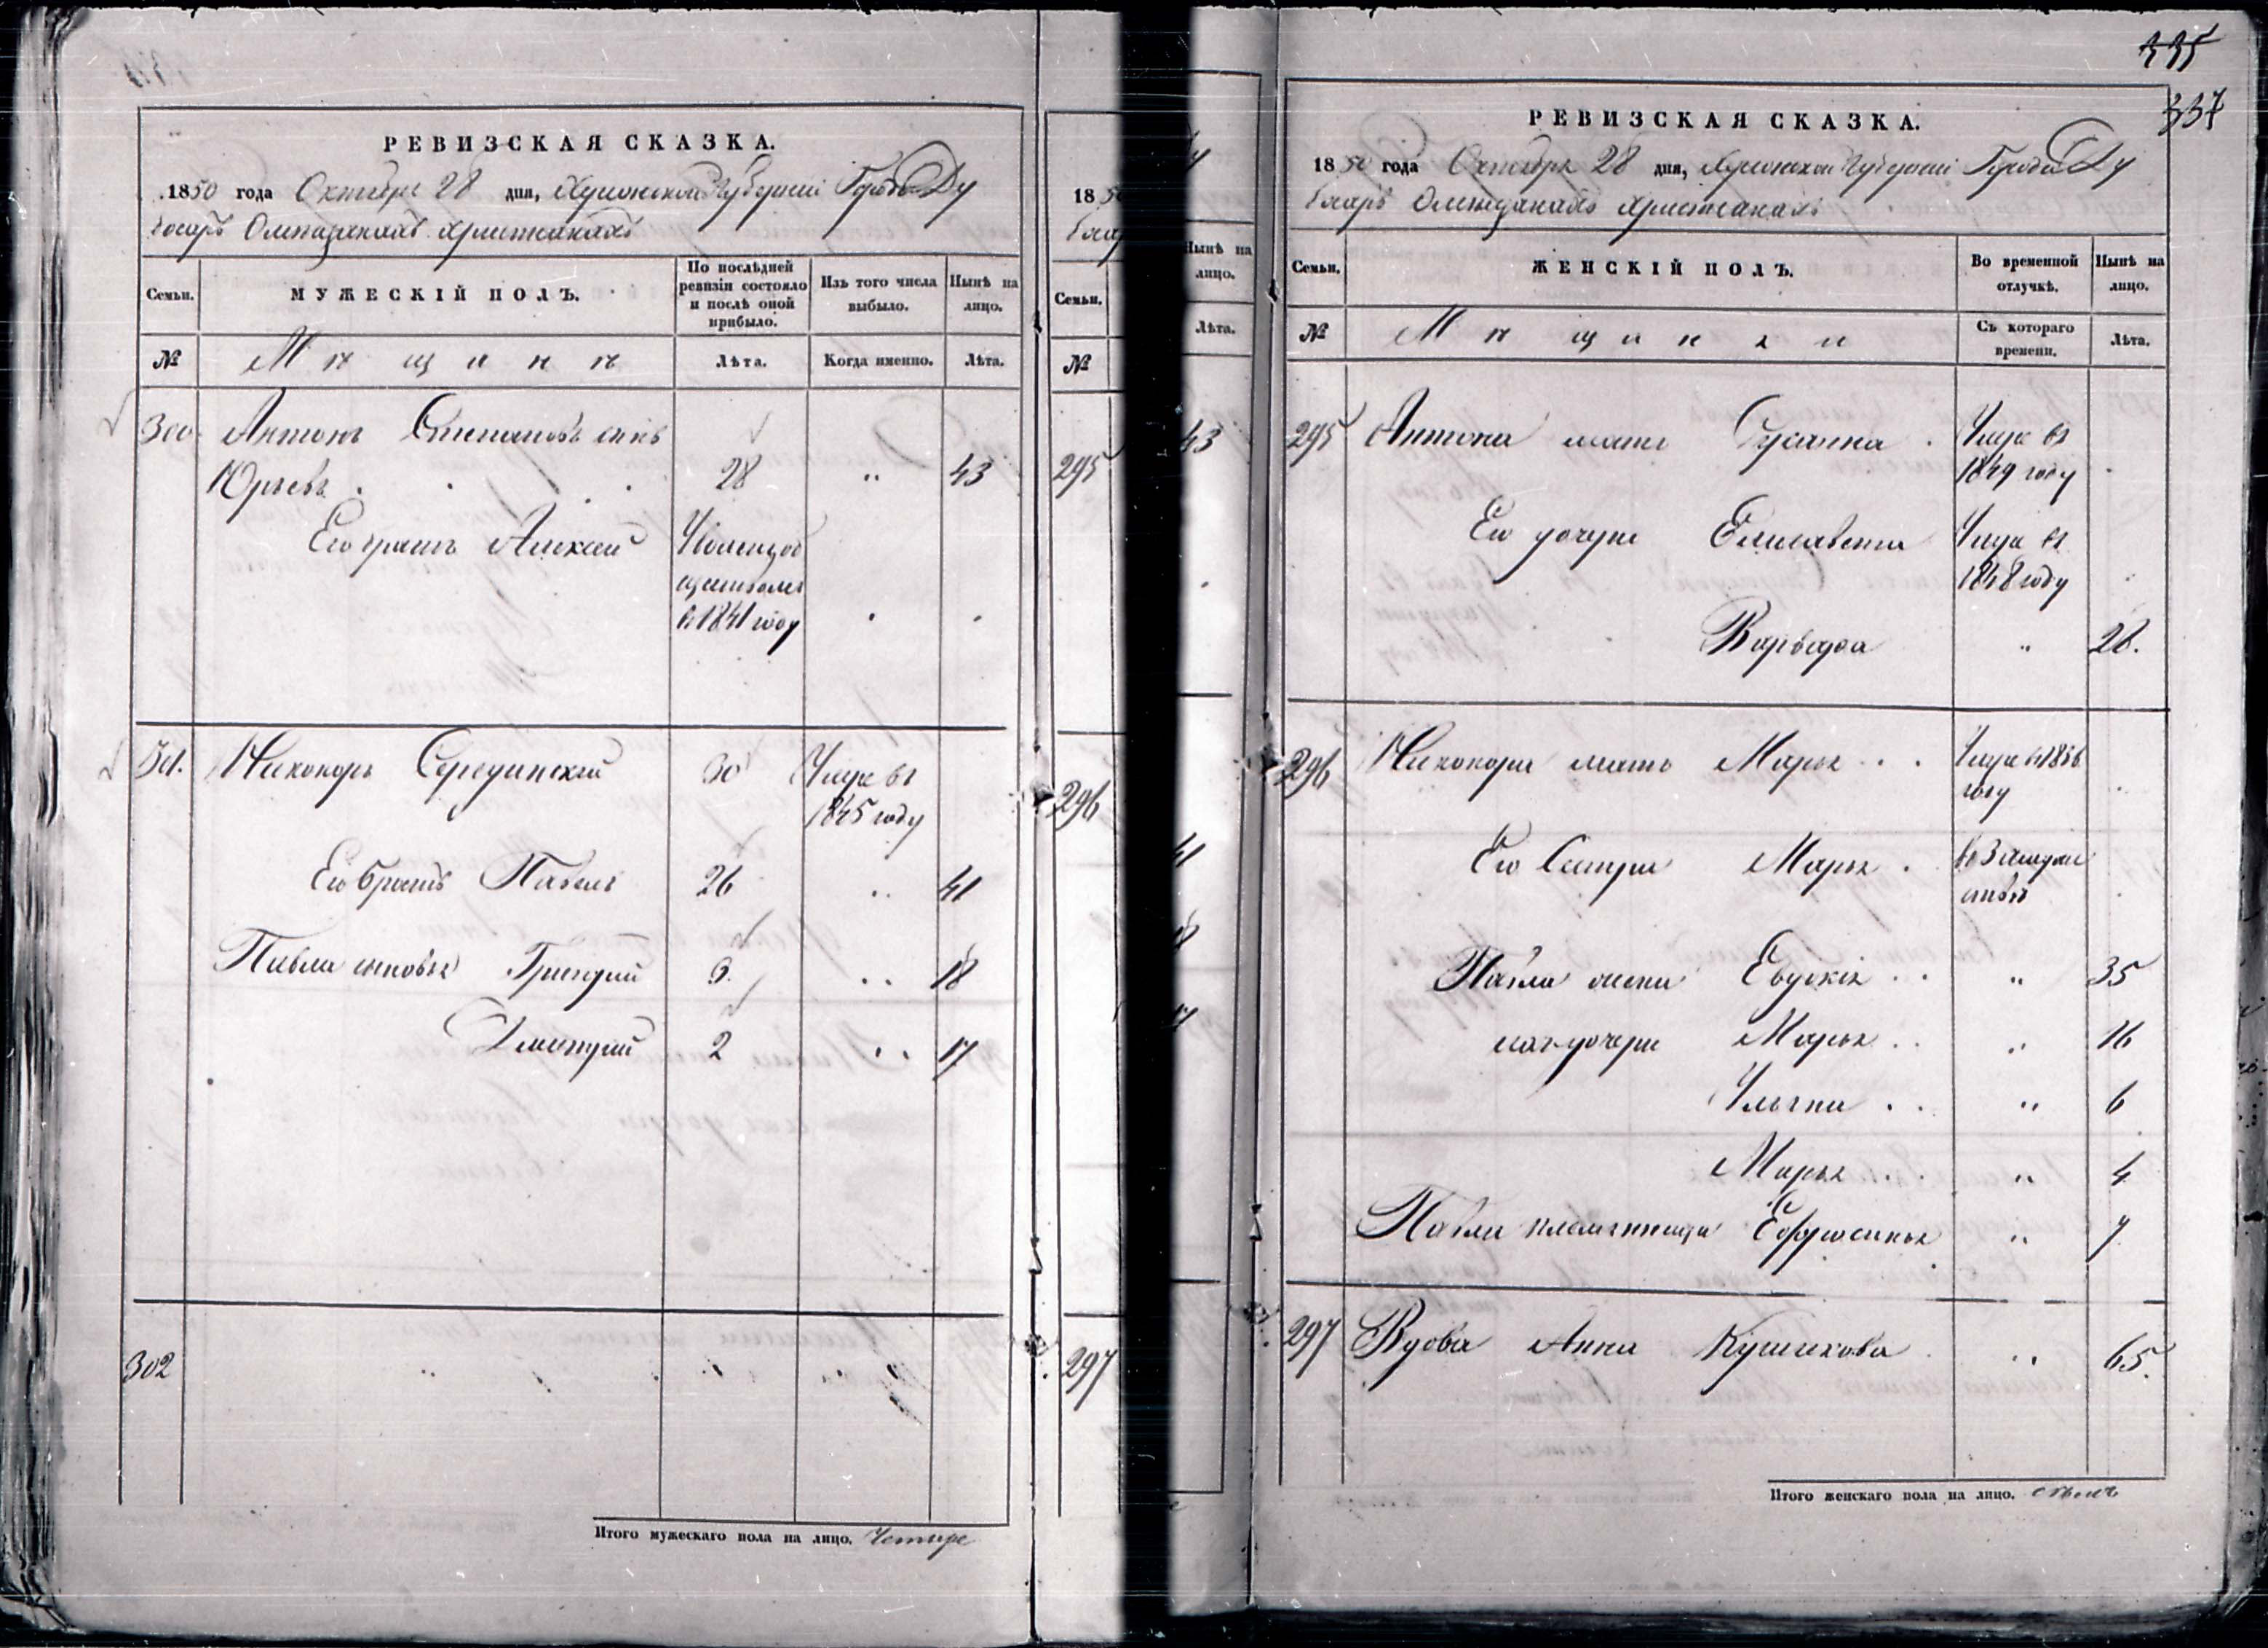 РЕВИЗСКАЯ СКАЗКА.
1850 года Октября 28 дня, Херсонской Губернии Города Ду
босаръ О мещанахъ христіанахъ
Семьи.
МУЖЕСКІЙ ПОЛЪ.
По послѣдней
ревизіи состояло
и послѣ оной
прибыло.
Изъ того числа
выбыло.
Нынѣ на
лицо.
№
Мѣщане
Лѣта.
Когда именно.
Лѣта.
300 Антонъ Степановъ сынъ
Юрьевъ . . . . 28 " 43
Его братъ Алексей
в 1841 году
301. Никоноръ Серединскій 30 Умре въ
1845 году
Его братъ Павелъ 26 " 41
Павла сыновья Григорій 18
Дмитрій 2 " 17
302
Итого мужескаго пола на лицо. Четыре
1850
Семьи.
№
295
296
297
Нынѣ на
лицо.
Лѣта.
43
41
18
17
335
337
РЕВИЗСКАЯ СКАЗКА.
1850 года Октября 28 дня, Херсонской Губерніи Города Ду
босаръ О мещанахъ христіанахъ
Семьи.
ЖЕНСКІЙ ПОЛЪ.
Во временной
отлучкѣ.
Нынѣ на
лицо.
№
Мѣщанки
Съ котораго
времени.
Лѣта.
295 Антона мать Сусанна . Умре въ
1849 году
Его дочери Елисавета Умре въ
1848 году
Варвара " 28.
296 Никонора мать Марья . . Умре въ
году
Его Сестра Марья . въ Замуже
ствѣ
Павла жена Евдокія . . " 35
ихъ дочери Марья . . " 16
Ульяна . . " 6
Марья . . " 4
Павла племянница Ефросинья " 7
297 Вдова Анна " 65.
Итого женскаго пола на лицо. семь